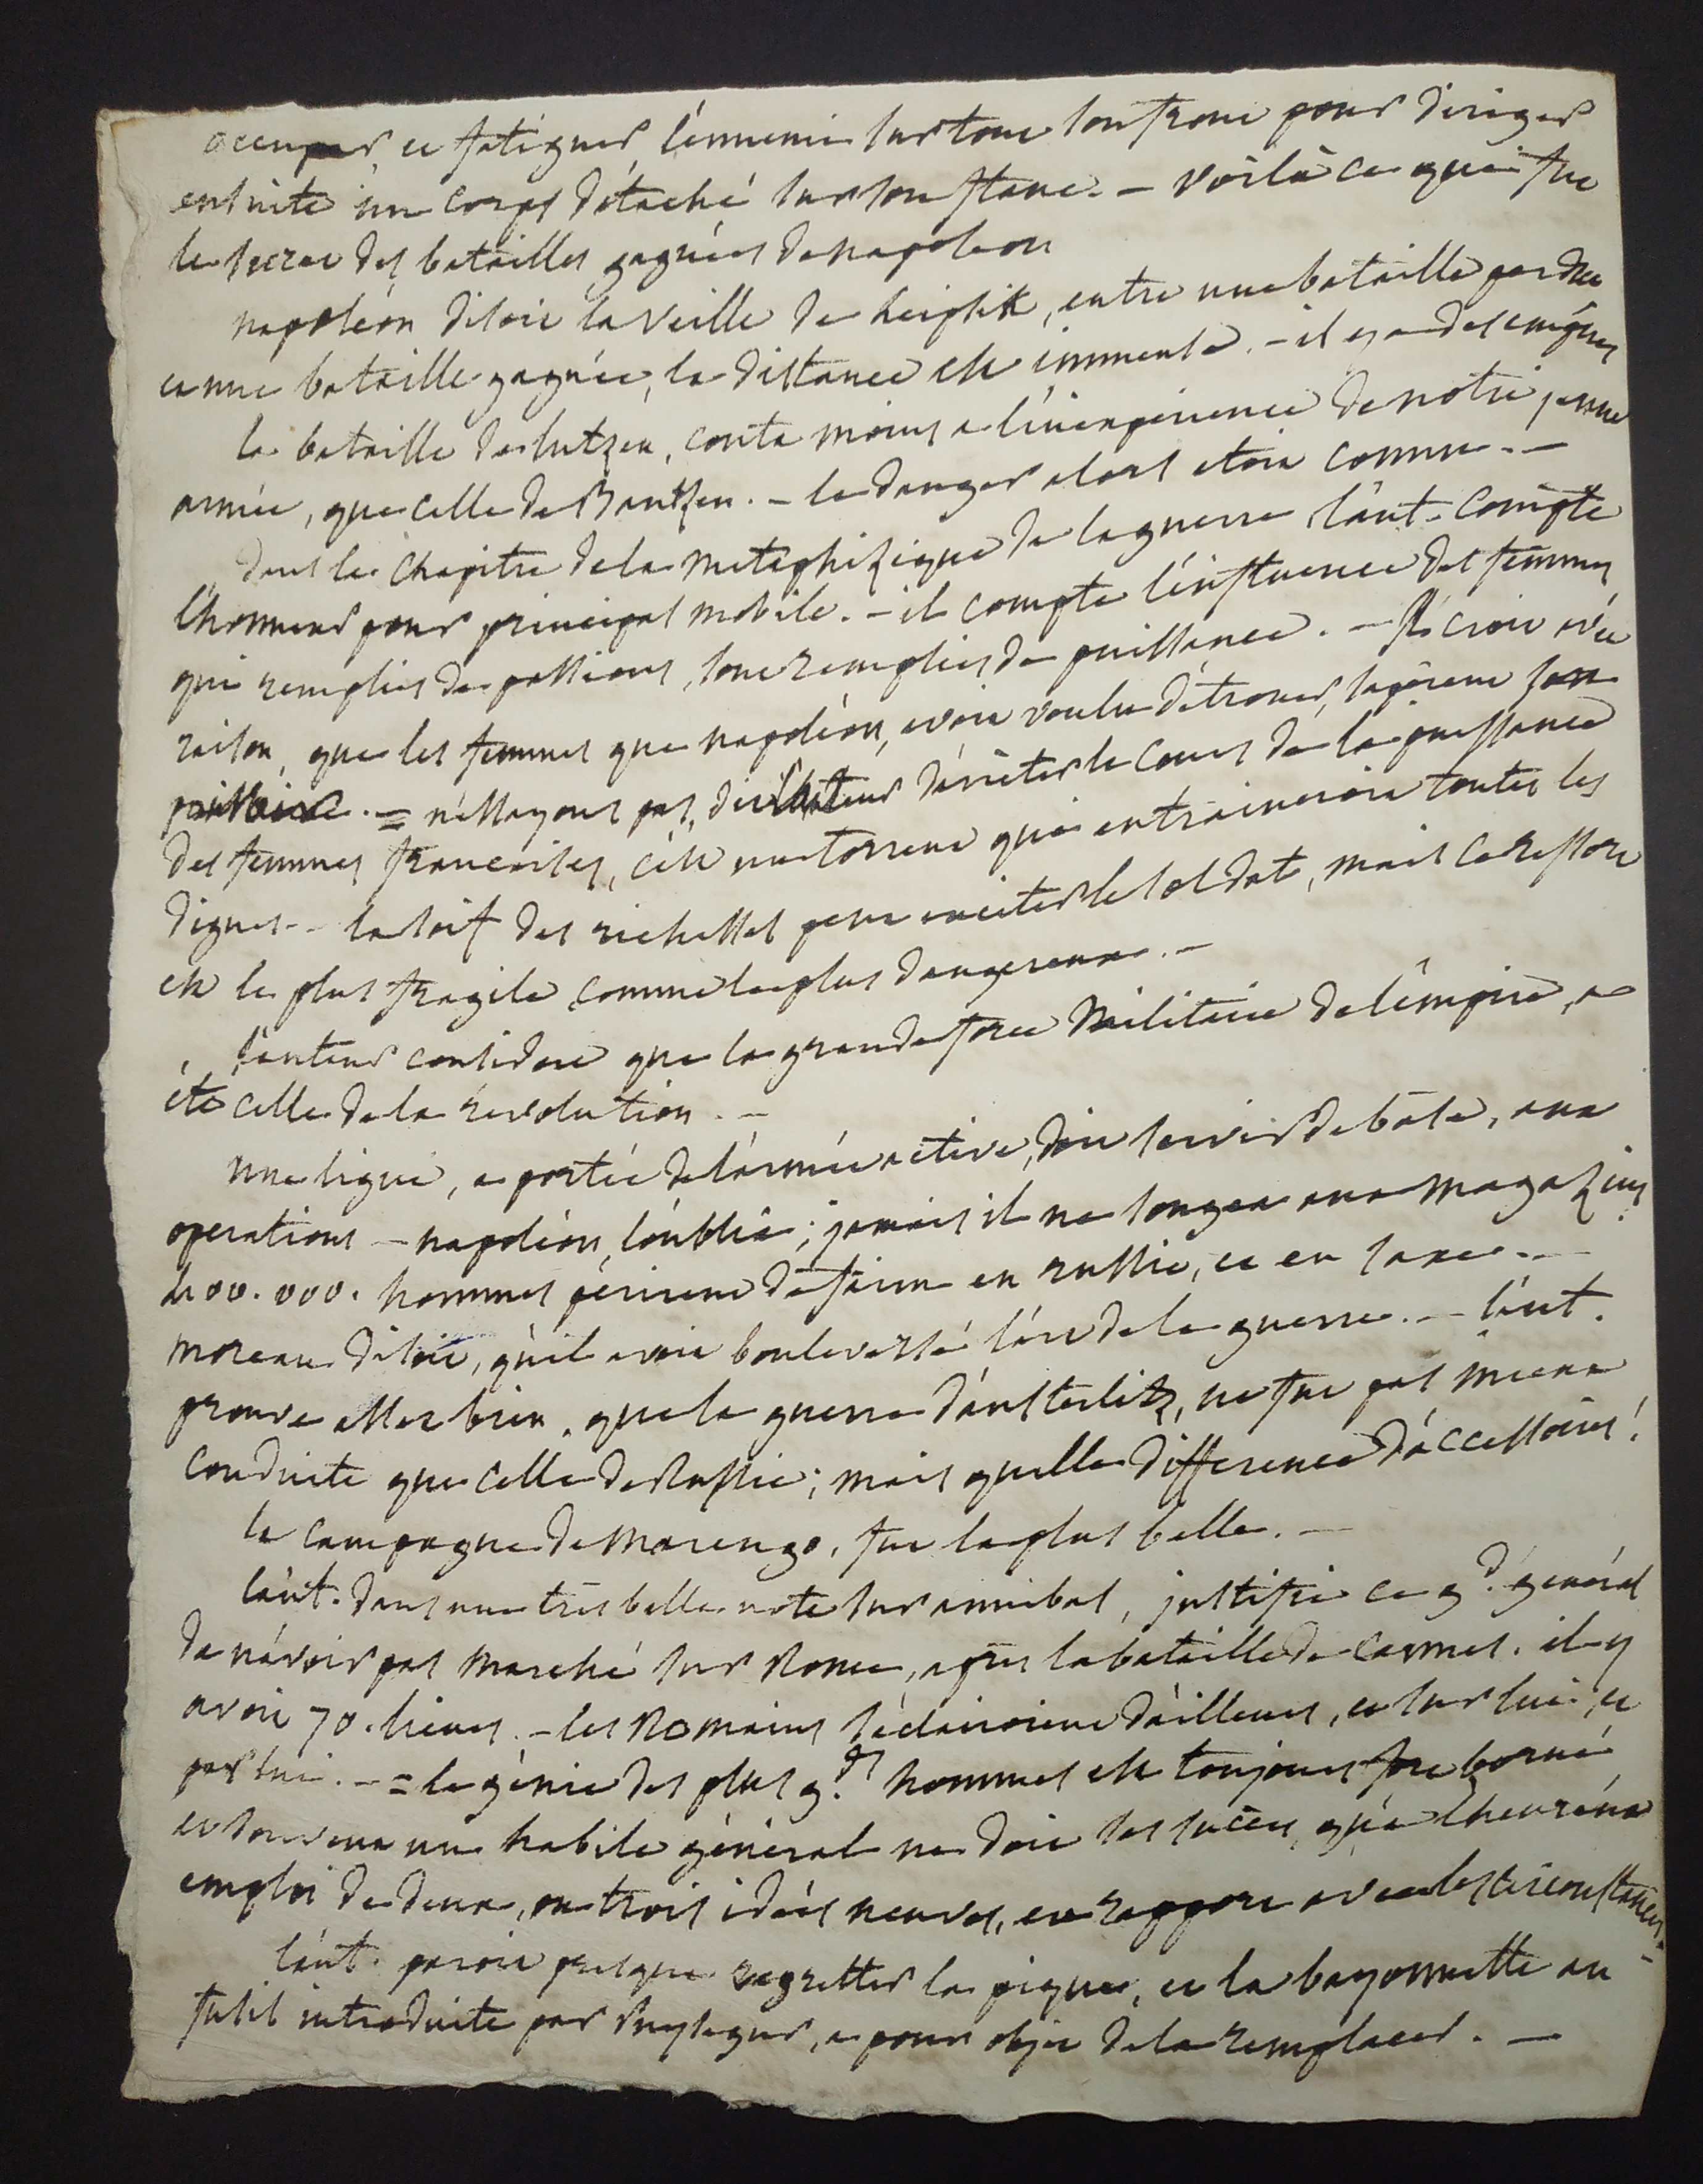 occuper et fatiguer l'ennemi sur tout son front pour diriger
ensuite un corps détaché sur son flanc. — voilà ce qui fut
le secret des batailles gagnées de napoleon
napoléon disoit la veille de leipsik, entre une bataille perdue
et une bataille gagnée, la distance est immense. — il y a des empires
la bataille de lutzen, couta moins a l'inexperience de notre jeune
armée, que celle de Bautzen. — le danger alors etoit connu. —
dans le chapitre de la metaphizique de la guerre l'aut. compte
l'honneur pour principal mobile. — il compte l'influence des femmes
qui remplies de passions, sont remplies de puissance. — Il croit avec
raison, que les femmes que napoléon, avoit voulu détroner, sapèrent son
= n'essayons pas, dit l'auteur d'arrêter le cours de la puissance
des femmes francaises, c'est un torrent qui entraineroit toutes les
digues — la soif des richesses peut exciter le soldat, mais ce ressort
est le plus fragile comme le plus dangereux. —
l'auteur considere que la grande force Militaire de l'empire, a
été celle de la révolution. —
une ligne, a portée de l'armée active, doit servir de base, aux
operations — napoléon, l'oublia; jamais il ne songea aux magazins
400.000. hommes périrent de faim en russie, et en saxe. —
moreau disoit, qu'il avoit bouleversé l'art de la guerre. — l'aut.
prouve assez bien, que la guerre d'austerlitz, ne fut pas mieux
conduite que celle de Russie; mais quelle difference d'accessoires!
la campagne de Marengo, fut la plus belle. —
l'aut. dans une très belle note sur annibal, justifie ce gd. général
de n'avoir pas marché sur Rome, après la bataille de cannes. il y
avoit 70. lieues. — les Romains s'éclairoient d'ailleurs, et sur lui, et
par lui. — = le génie des plus gds. hommes est toujours fort borné
et souvent un habile général ne doit ses succès, qu'a l'heureux
emploi de deux, ou trois idées neuves, en rapport avec les circonstances.
l'aut. paroit presque regretter la pique, et la bayonnette au
fusil introduite par Puysegur, a pour objet de la remplacer. —